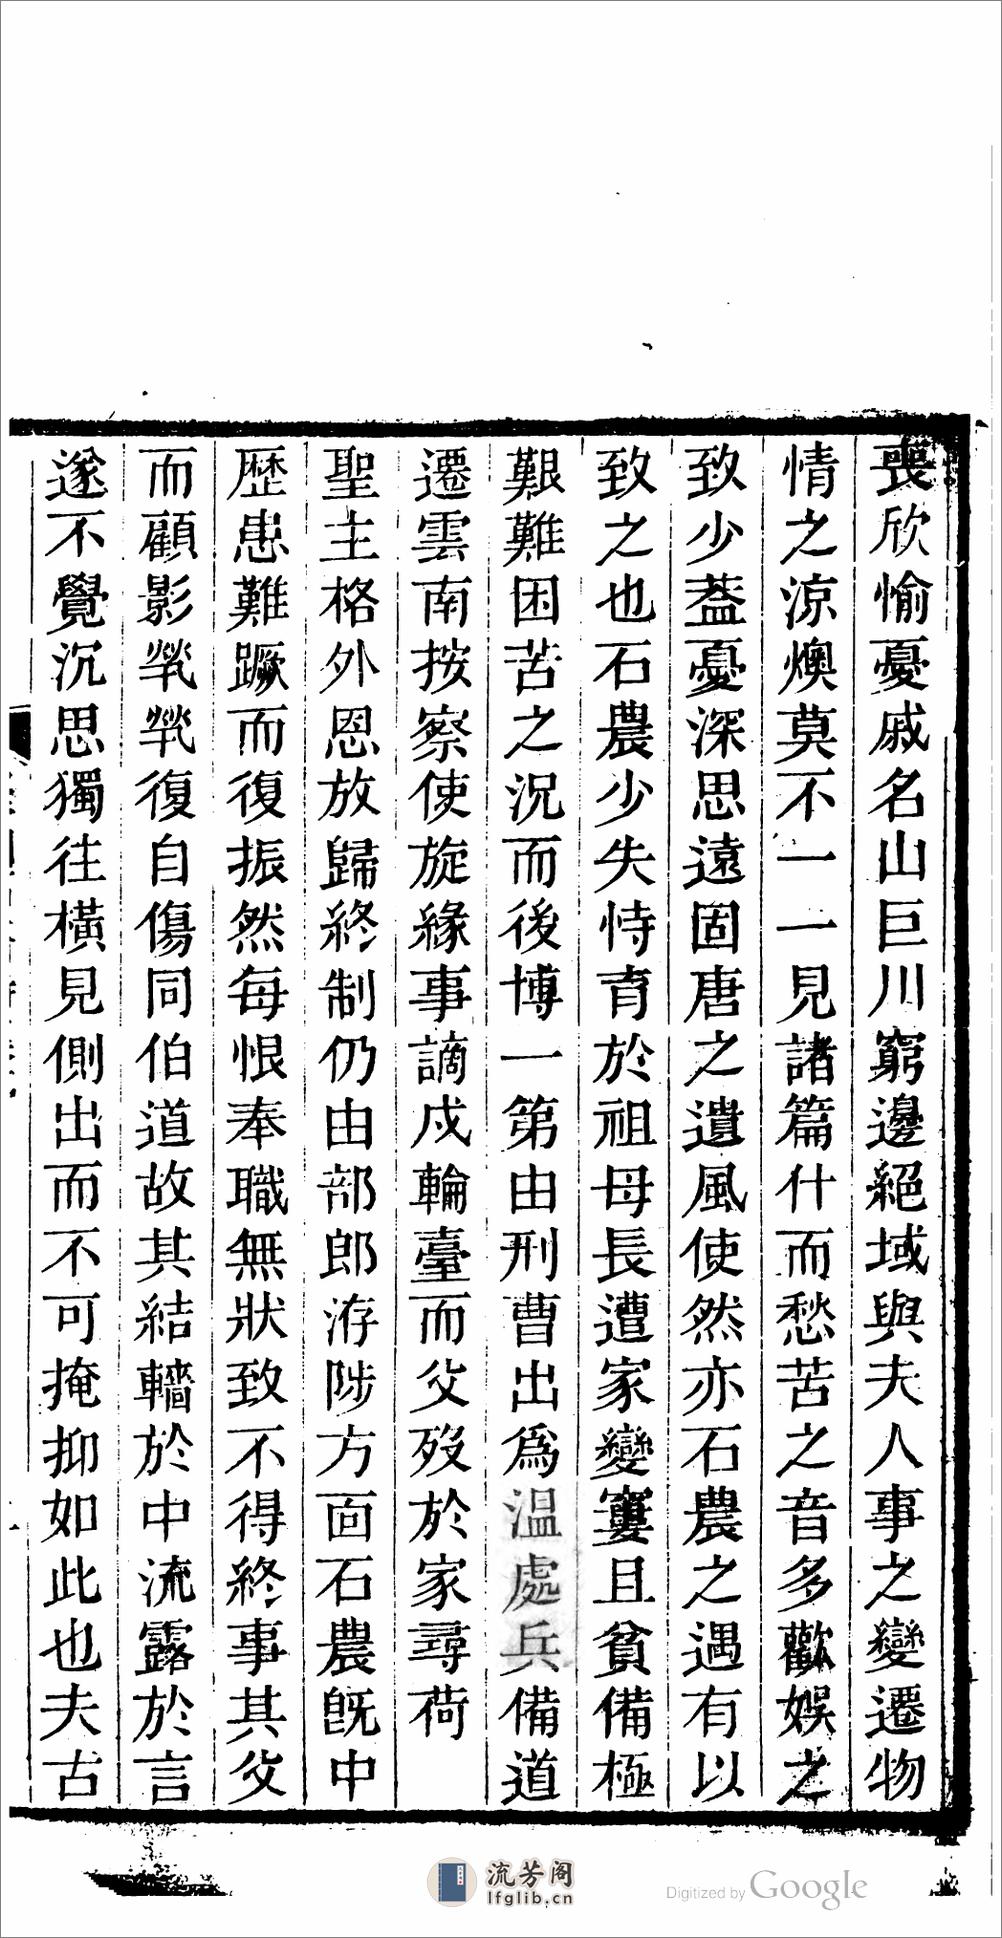 喪欣愉憂戚名山巨川窮邊絕域與夫人事之變遷物
情之涼燠莫不一一見諸篇什而愁苦之音多歡娛之
致少葢憂深思遠固唐之遺風使然亦石農之遇有以
致之也石農少失恃育於祖母長遭家變窶且貧備極
艱難困苦之況而後博一第由刑曹出爲温處兵備道
遷雲南按察使旋緣事謫戍輪臺而父歿於家尋荷
聖主格外恩放歸終制仍由部郎洊陟方面石農旣中
歷患難蹶而復振然每恨奉職無狀致不得終事其父
而顧影煢煢復自傷同伯道故其結轖於中流露於言
遂不覺沉思獨往橫見側出而不可掩抑如此也夫古
流芳阁
lfglib.cn
Digitized by Google